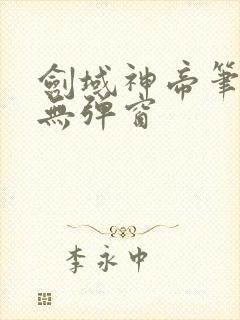 劍域神帝筆
無彈窗
李永中